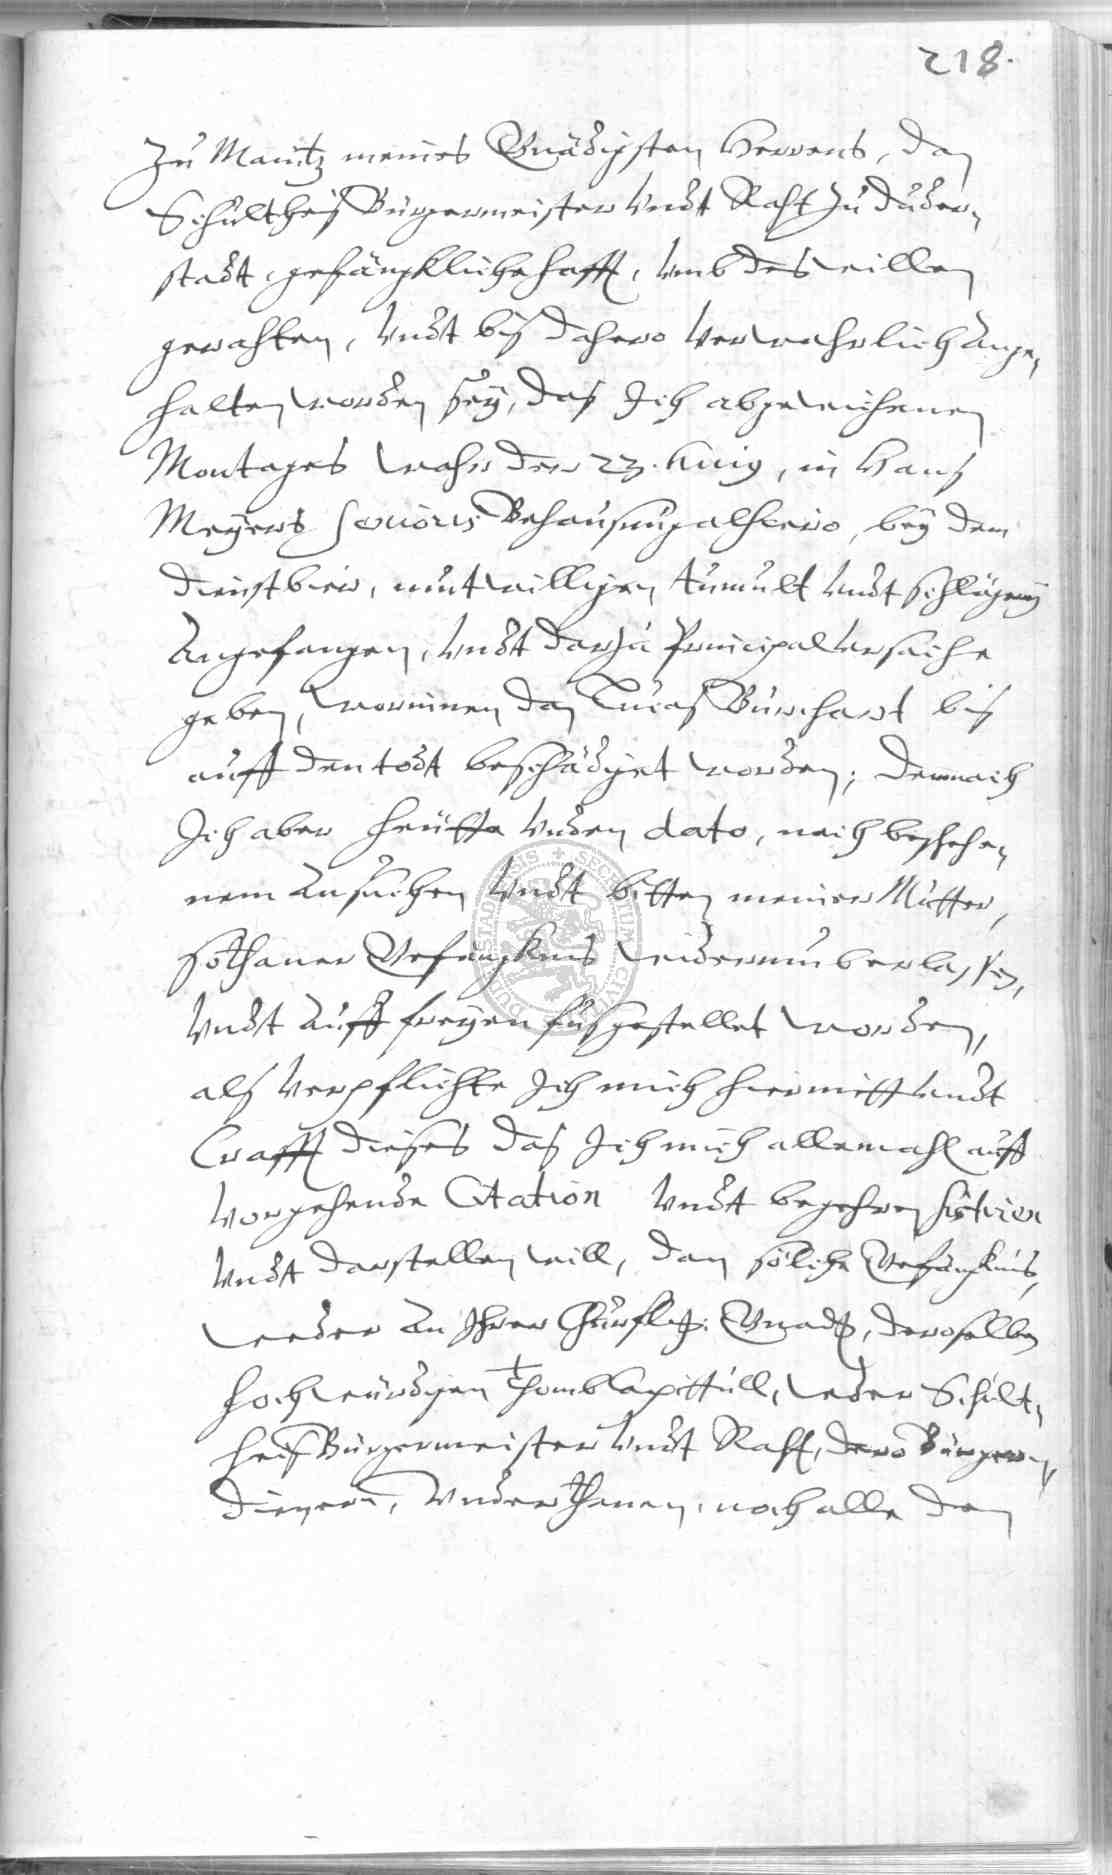 218.
Zu Maintz meines Gnädigsten Herrens, dan
Schultheiß Bürgermeister Undt Raht zu Duder-
stadt, gefängkliche hafft, umb deswillen
gerahten, Undt biß dahero Verwahrlich Ange-
halten worden seÿ, daß Ich abgewichenen
Montages wahr der 23. huius, in Hanß
Meÿers Senioris Behausung alhiero, beÿ dem
dienstbier, mutwilligen tumult Undt schlägereÿ
Angefangen, Undt darzu Principal Ursache
geben, worinnen dan Lucas Burchart biß
auff den todt beschädiget worden, demnach
Ich aber heutte Unden dato, nach beschehe-
nem Ansuchen Undt bitten meiner Mutter,
sothaner Gefängknis widerumb erlassen,
Undt Auff freyen fuß gestellet worden,
alß Verpflichte Ich mich hiermitt Undt
Crafft dieses daß Ich mich allemahl auff
Vorgehende Citation Undt begehren sistiren
Undt darstellen will, dan solche Gefängknis,
weder An Ihrer Churfl. Gnadt, deroselben
hochwürdigen Thombcapittull, weder Schult-
heiß Bürgermeister Undt Raht, dero Bürgern,
dienern, Underthanen, noch alle den
DUDERSTADENSIS SECRETUM CIVITATIS